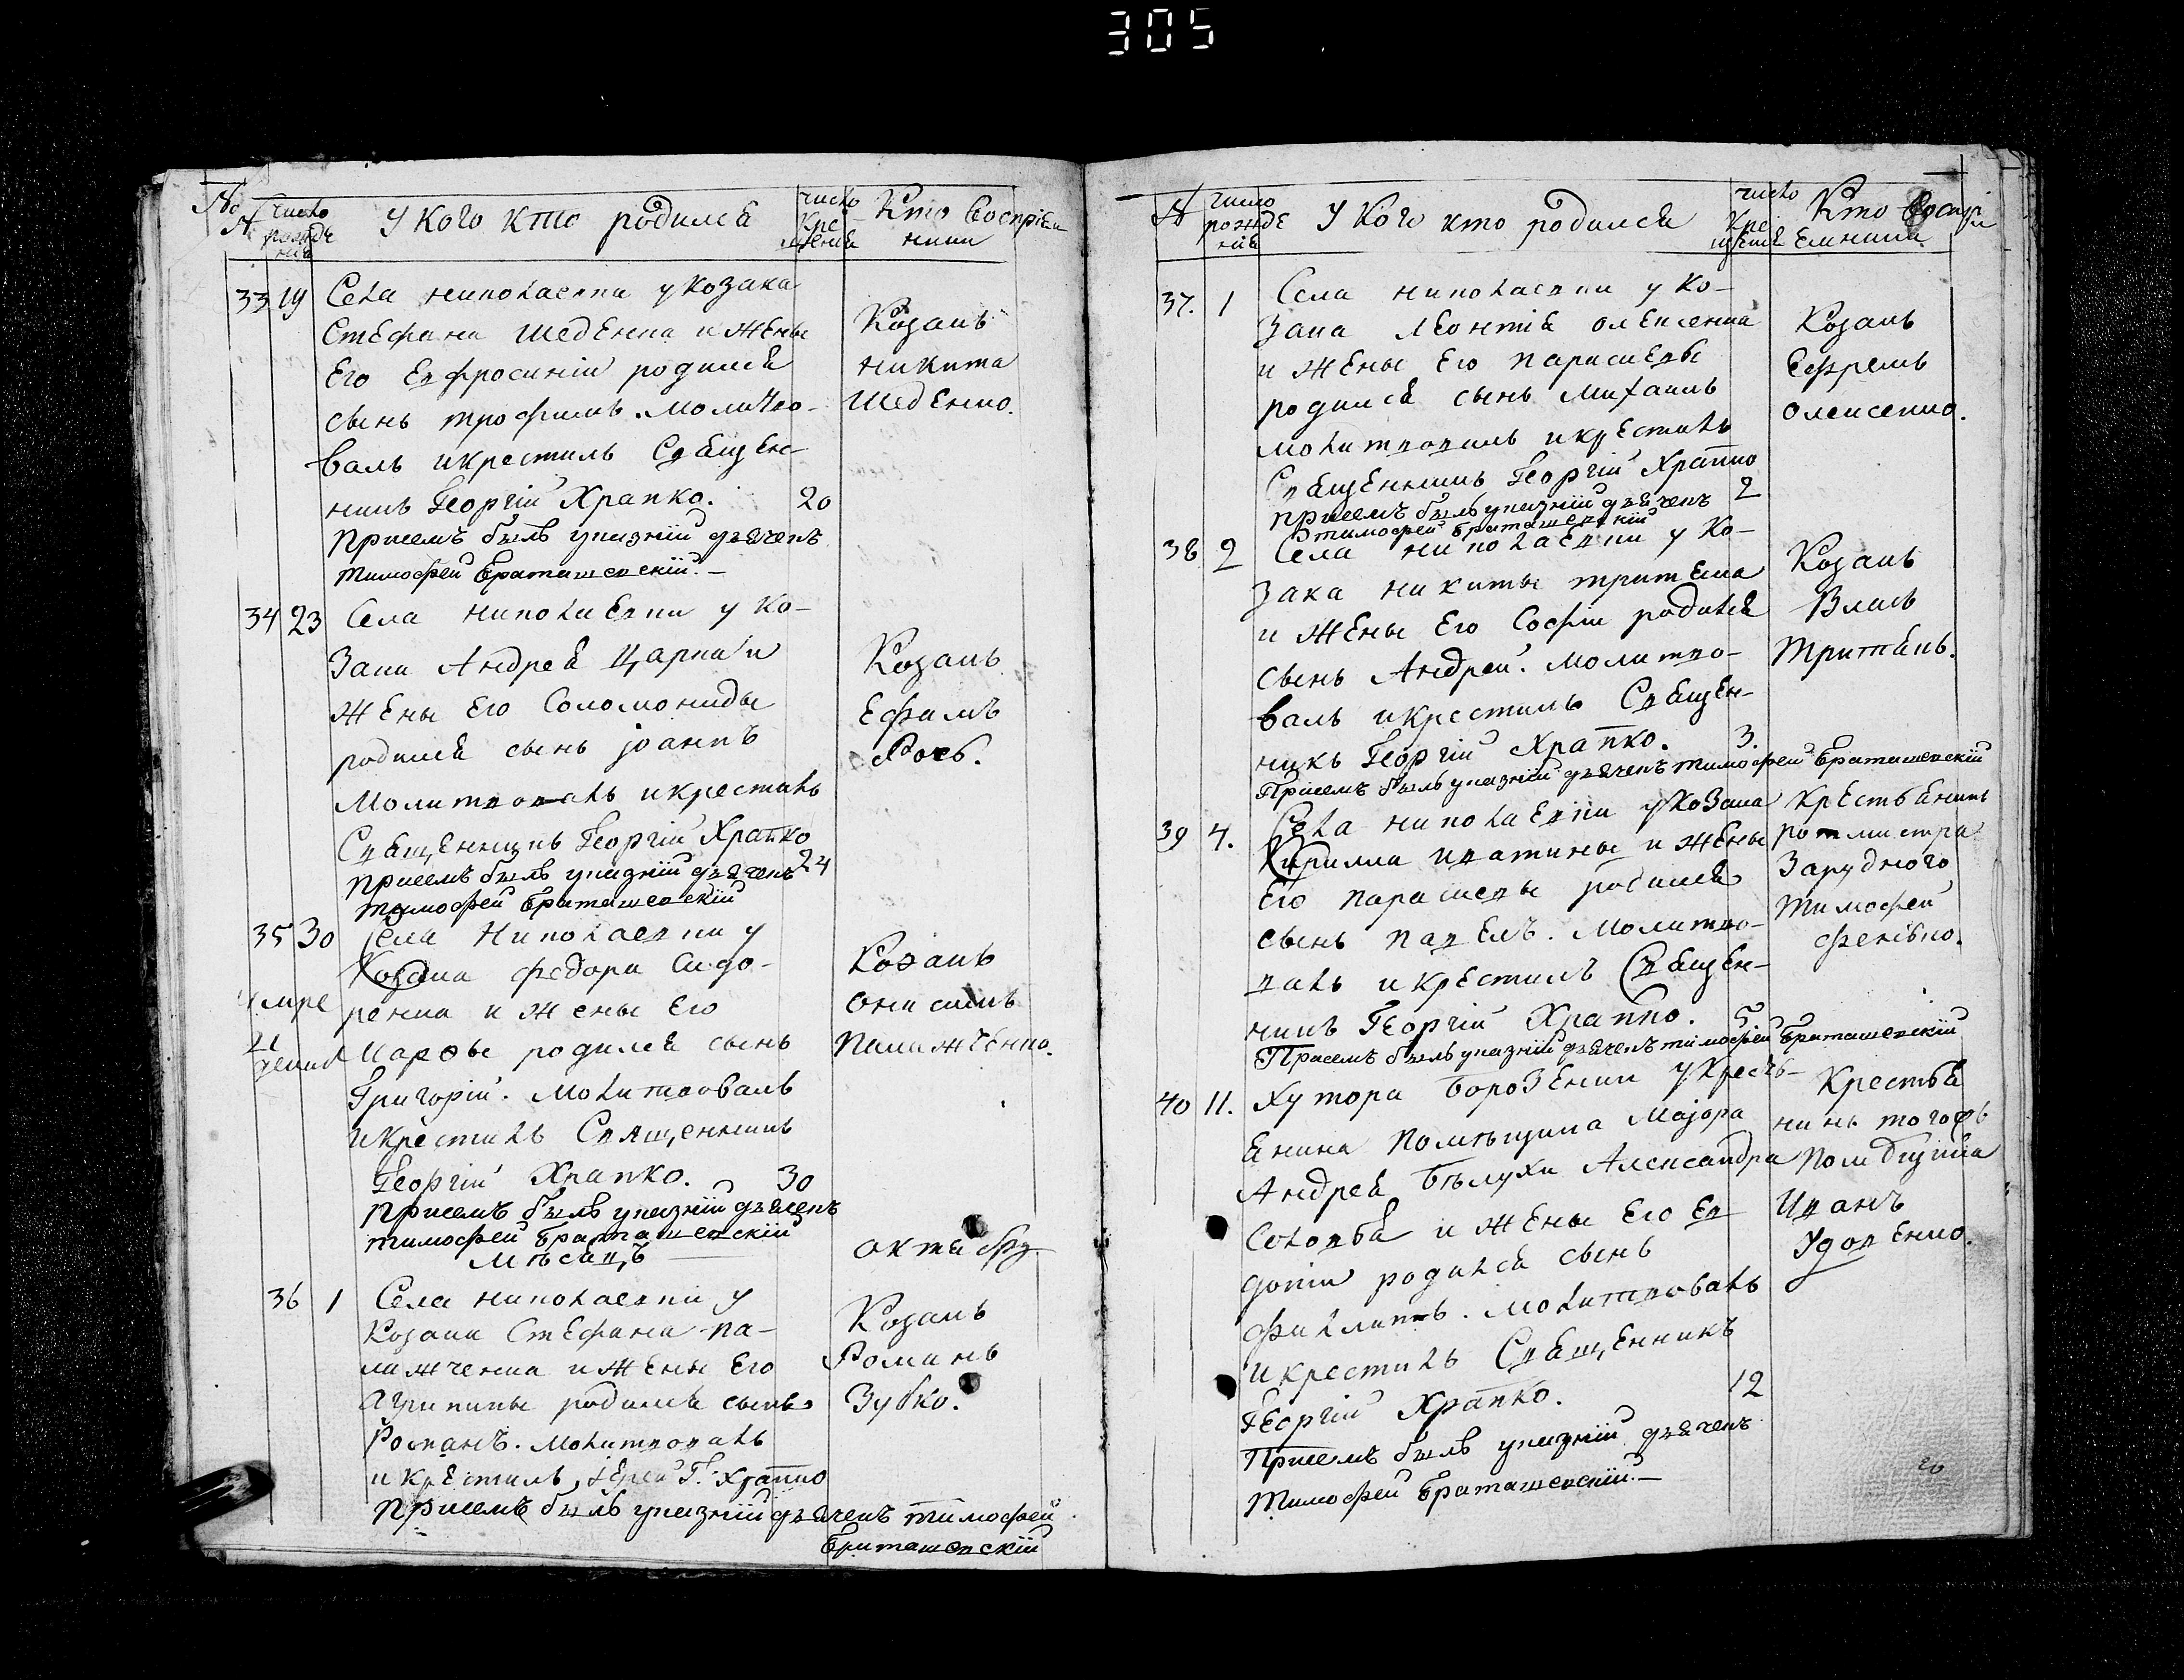 305
№
числο
рожде
нія
У кого кто родился
число
Кре
щенія
Кто Воспріем
ники
33 19 Села николаевки у козака
Стефана Шедѣнка и жены
Его Евфросиніи родился
сынъ трофимъ. Молитво-
валъ и крестилъ Священ-
никъ Георгій Храпко. 20
присемъ былъ указній дьячекъ
тимофей Браташевскій.-
Козакъ
никита
Шеденко.
34 23 Села николаевки у ко-
зака Андрея Царка и
жены Его Соломониды
родился сынъ јоаннъ
Молитвовалъ и крестилъ
Священникъ Георгій Храпко
присемъ былъ указній дьячекъ 24
тимофей Браташевскій
Козакъ
Ефимъ
35 30 Села Николаевки у
Козака федора Сидо-
ренка и жены Его
Марфы родился сынъ
Григорій. Молитвовалъ
и крестилъ Священникъ
Георгій Храпко. 30
присемъ былъ указній дьячекъ
тимофей Браташевскій
Козакъ
онисимъ
Мѣсацъ октябрь
36 1 Села николаевки у
Козака Стефана Па-
лажченка и жены Его
Агрипины родился сынъ
Романъ. Молитвовалъ
и крестилъ јерей Г. Храпко
присемъ былъ указній дьячекъ тимофей
Браташевскій
Козакъ
Романъ
Зубко.
№
число
рожде
нія
У кого кто родился
число
Кре
щенія
Кто Воспрі
емники
37. 1 Села николаевки у ко-
зака Леонтія олексенка
и жены Его параскевы
родился сынъ Михаилъ
молитвовалъ и крестилъ
Священникъ Георгій Храпко
присемъ былъ указній дьячекъ 2
тимофей Браташевскій
Козакъ
Ефремъ
олексенко.
38 2 Села николаевки у ко-
зака никиты тритяка
и жены Его Софіи родился
сынъ Андрей. Молитво-
валъ и крестилъ Священ-
никъ Георгій Храпко. 3.
Присемъ былъ указній дьячекъ тимофей Браташевскій
Козакъ
Власъ
39 4. Села николаевки у козака
Кирилла иватины и жены
Его параскевы родился
сынъ павелъ. Молитво-
валъ и крестилъ Священ-
никъ Георгій Храпко. 5
Присемъ былъ указній дьячекъ тимофей Браташевскій
крестьянинъ
ротмистра
Зарудного
тимофей
40 11. Хутора Борозенки у крестъ-
янина помѣщика Маіора
Андрея Бѣлухи Александра
Соловья и жены Его Ев
докіи родился сынъ
филиппъ. Молитвовалъ
и крестилъ Священникъ
Георгій Храпко. 12
Присемъ былъ указній дьячекъ
тимофей Браташевскій.-
Крестья
нинъ тогожъ
помѣщика
Иванъ
Удовенко.
20